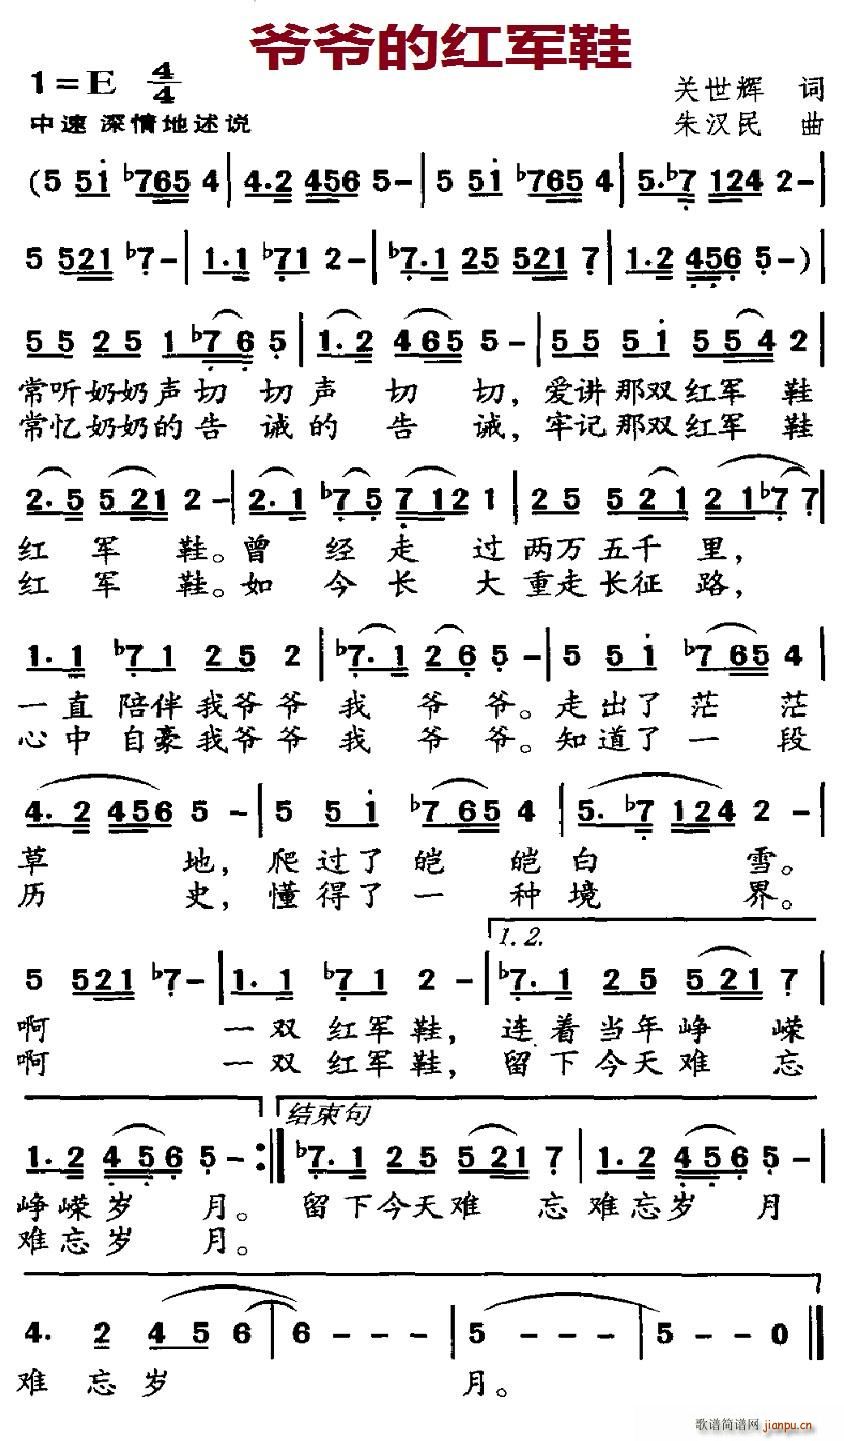 爷爷的红军鞋
1=E 4/4
关世辉 词
中速 深情地述说
朱汉民 曲
(5 51 ♭765 4 | 4.2 456 5- | 5 51 ♭765 4 | 5.♭7 124 2- |
5 521 ♭7- | 1.1 ♭71 2- | ♭7.1 25 521 7 | 1.2 456 5-) |
55 25 1♭76 5 | 1.2 465 5- | 55 51 554 2 |
常听奶奶声切 切声 切 切，爱讲那双红军 鞋
常忆奶奶的告 诫的 告 诫，牢记那双红军 鞋
2.5 521 2- | 2.1 ♭75 7121 1 | 25 521 21♭7 7 |
红 军 鞋。曾 经 走 过 两万 五千 里，
红 军 鞋。如 今 长 大 重走 长征 路，
1.1 ♭71 25 2 | ♭7.1 26 5- | 5 51 ♭765 4 |
一直 陪伴 我爷 爷 我 爷 爷。走 出了 茫 茫
心中 自豪 我爷 爷 我 爷 爷。知 道了 一 段
4.2 456 5- | 5 51 ♭765 4 | 5.♭7 124 2- |
草 地，爬 过了 皑 皑 白 雪。
历 史，懂 得了 一 种 境 界。
1.2.
5 521 ♭7- | 1.1 ♭71 2- | ♭7.1 25 521 7 |
啊 一双 红军 鞋，连着 当年 峥 嵘
啊 一双 红军 鞋，留下 今天 难 忘
结束句
1.2 456 5- :‖ ♭7.1 25 521 7 | 1.2 456 5- |
峥嵘 岁 月。留下 今天 难 忘 难忘 岁 月
难忘 岁 月。
4. 2 45 6 | 6 - - - | 5 - - - | 5 - - 0 ‖
难 忘 岁 月。
歌谱简谱网 jianpu.cn